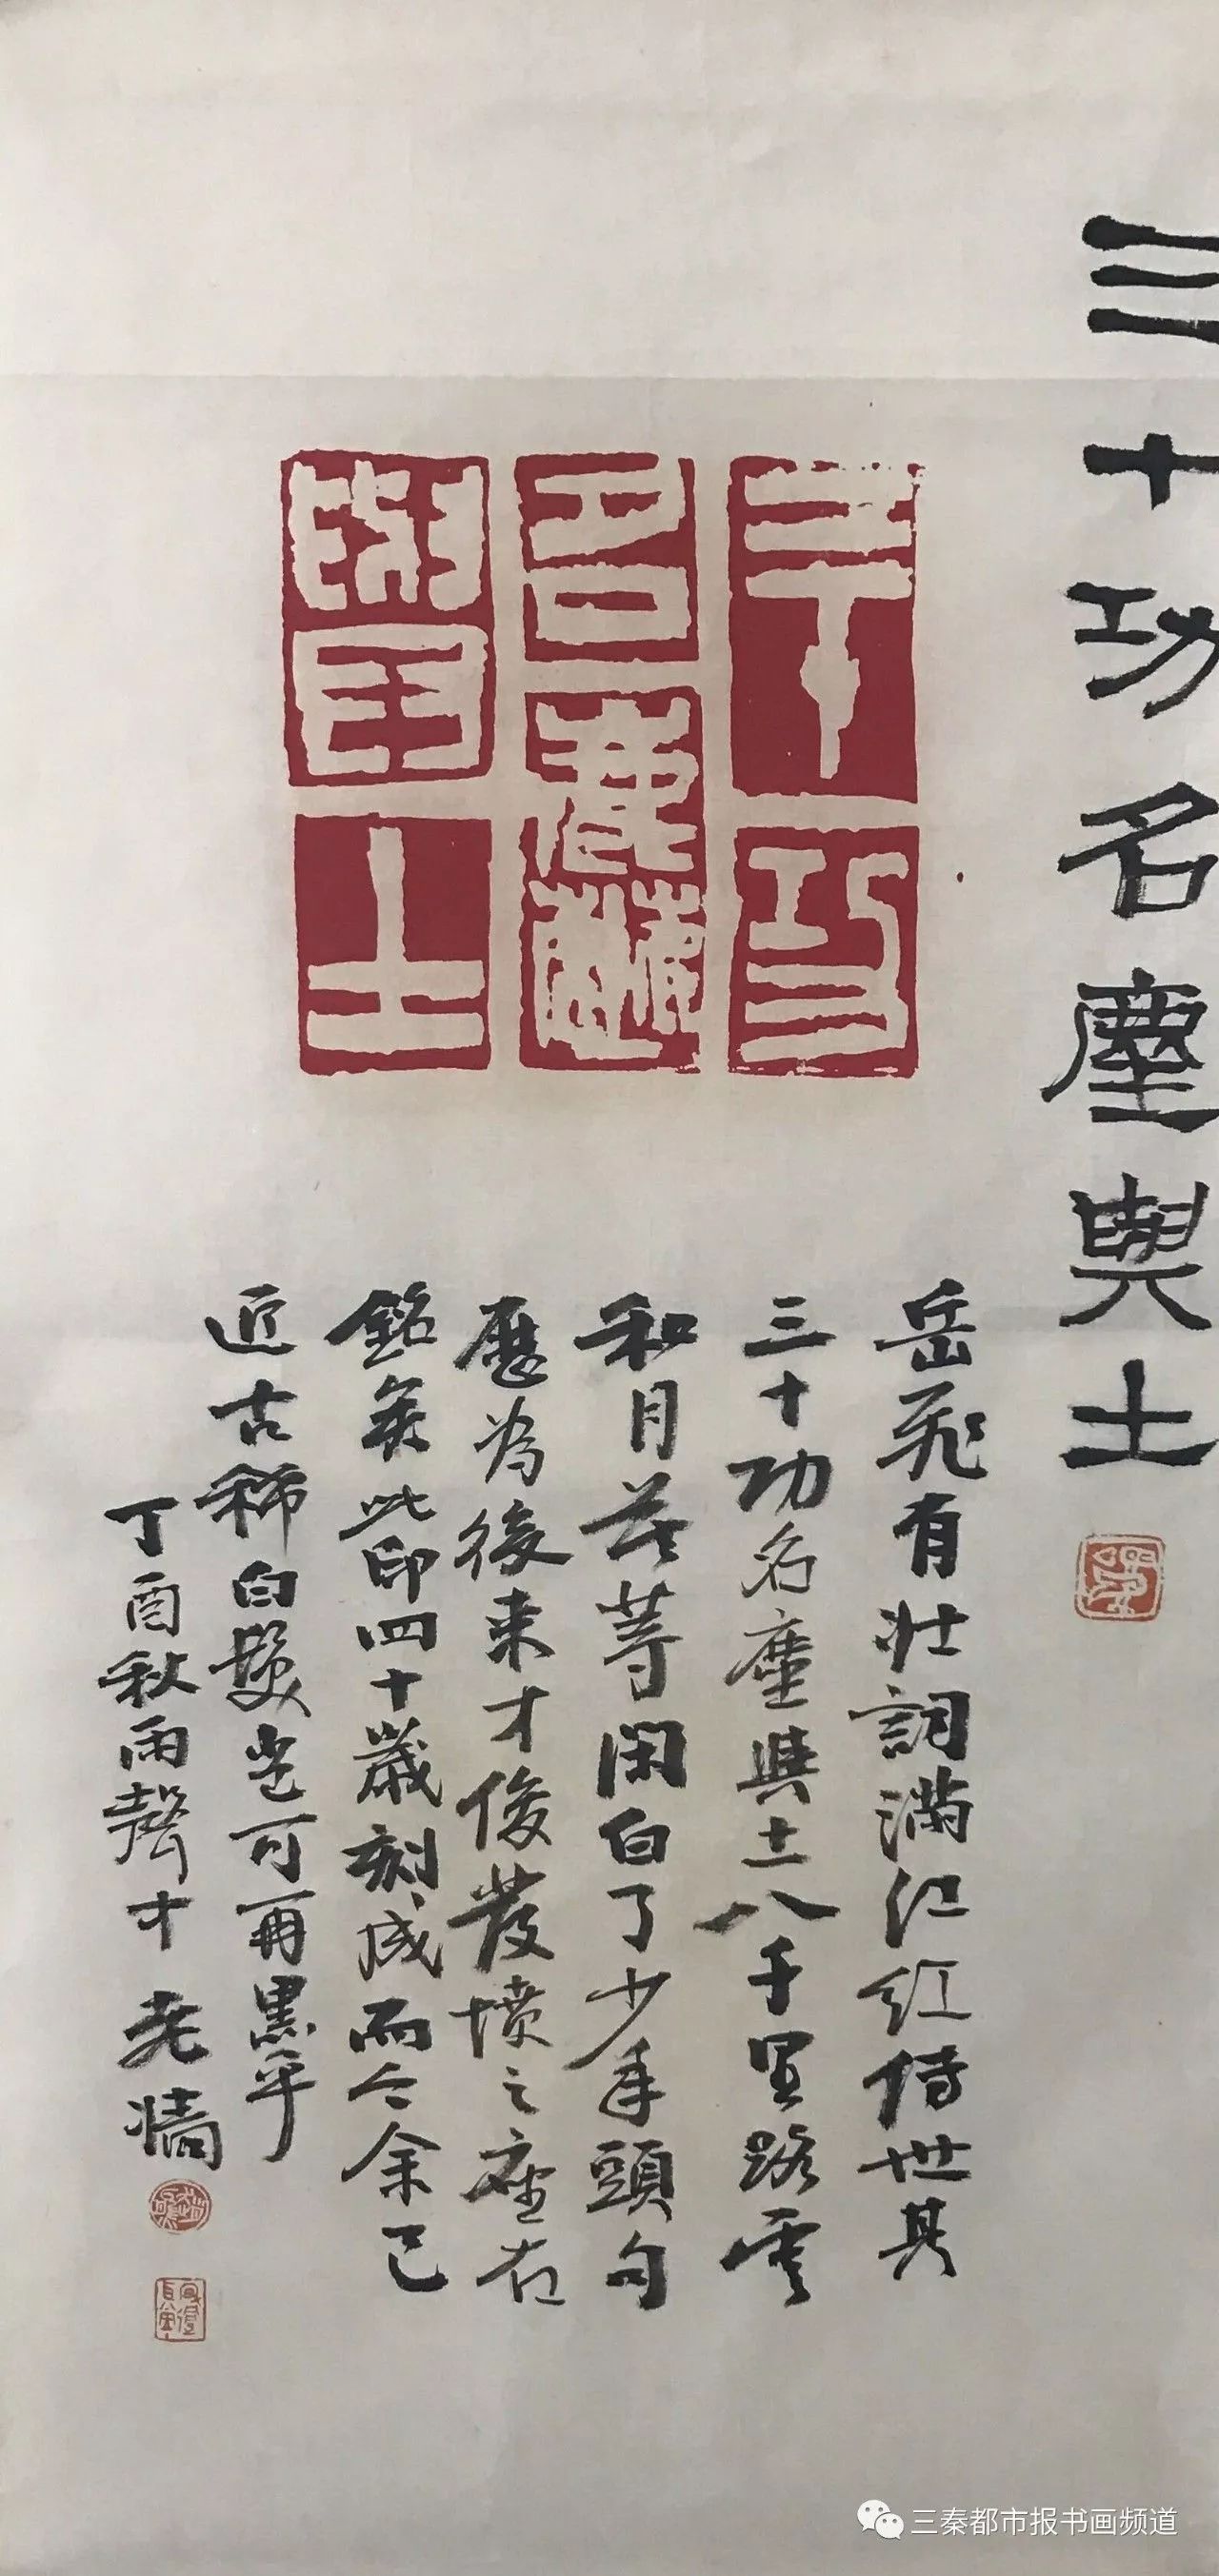 三十功名塵與土
三十功
名塵
與土
岳飛有壯詞滿江紅传世其
三十功名塵與土八千里路雲
和月莫等閑白了少年頭句
歷為後來才俊發憤之座右
銘矣此印四十歲刻成而今余已
近古稀白髮豈可再黑乎
丁酉秋雨聲才 老墻
三秦都市报书画频道